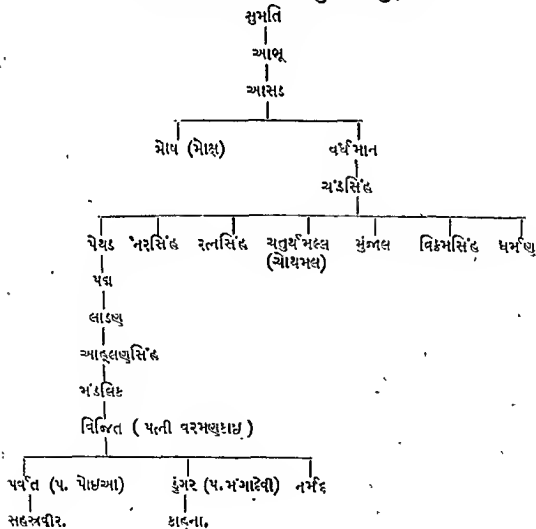 સુમતિ
આભૂ
આસડ
મોષ (મોક્ષ) વર્ધમાન
ચંડસિંહ
પેથડ નરસિંહ રત્નસિંહ ચતુર્થમલ્લ મુંજાલ વિક્રમસિંહ ધર્મણ
(ચોથમલ)
પદ્મ
લાડણ
આલ્હણસિંહ
મંડલિક
વિજિત ( પત્ની વરમણકાઇ )
પર્વત (પ. પોઇઆ) ડુંગર (પ. મંગાદેવી) નર્મદ
સહસ્ત્રવીર. કાન્હા.